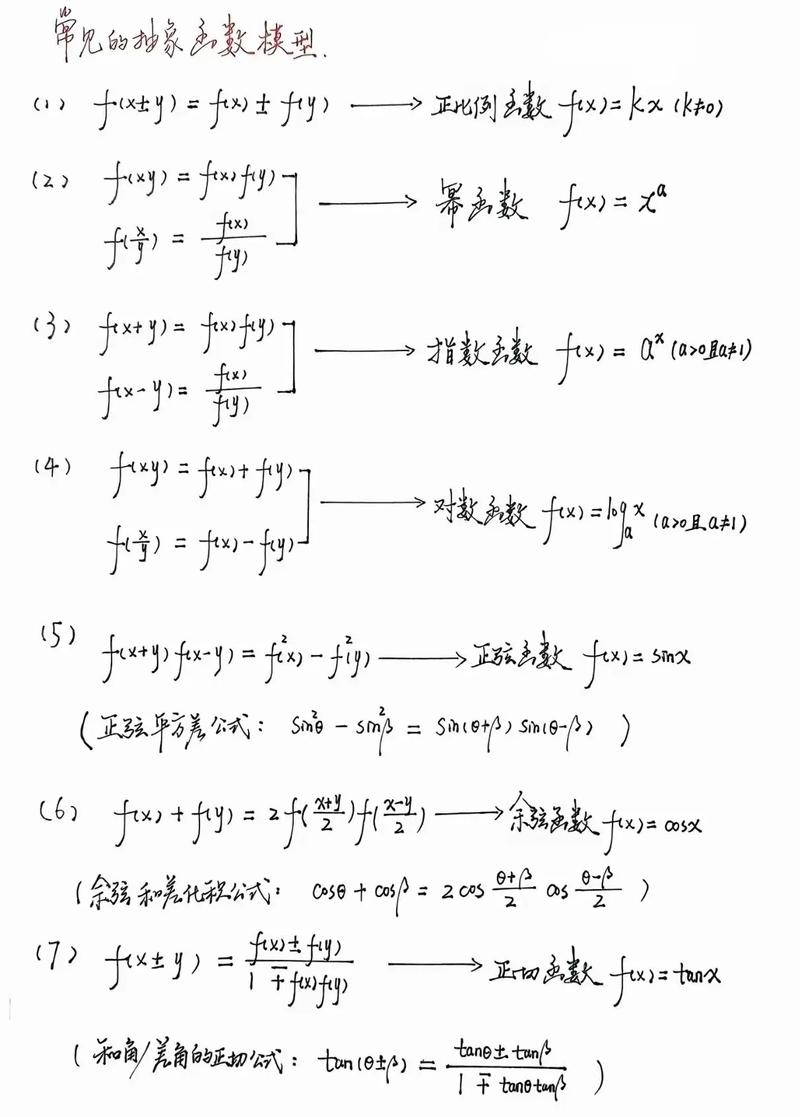 常见的抽象函数模型.
(1) f(x±y) = f(x) ± f(y) ⟶ 正比例函数 f(x) = kx (k≠0)
(2) f(xy) = f(x) f(y)
f(x/y) = f(x)/f(y) ⟶ 幂函数 f(x) = x^a
(3) f(x+y) = f(x) f(y)
f(x-y) = f(x)/f(y) ⟶ 指数函数 f(x) = a^x (a>0且a≠1)
(4) f(xy) = f(x) + f(y)
f(x/y) = f(x) - f(y) ⟶ 对数函数 f(x) = log_a x (a>0且a≠1)
(5) f(x+y) f(x-y) = f²(x) - f²(y) ⟶ 正弦函数 f(x) = sinx
(正弦平方差公式: sin²θ - sin²β = sin(θ+β) sin(θ-β) )
(6) f(x) + f(y) = 2f((x+y)/2) f((x-y)/2) ⟶ 余弦函数 f(x) = cosx
(余弦和差化积公式: cosθ + cosβ = 2cos (θ+β)/2 cos (θ-β)/2 )
(7) f(x±y) = (f(x) ± f(y))/(1 ∓ f(x)f(y)) ⟶ 正切函数 f(x) = tanx
(和角/差角的正切公式: tan(θ±β) = (tanθ ± tanβ)/(1 ∓ tanθtanβ) )